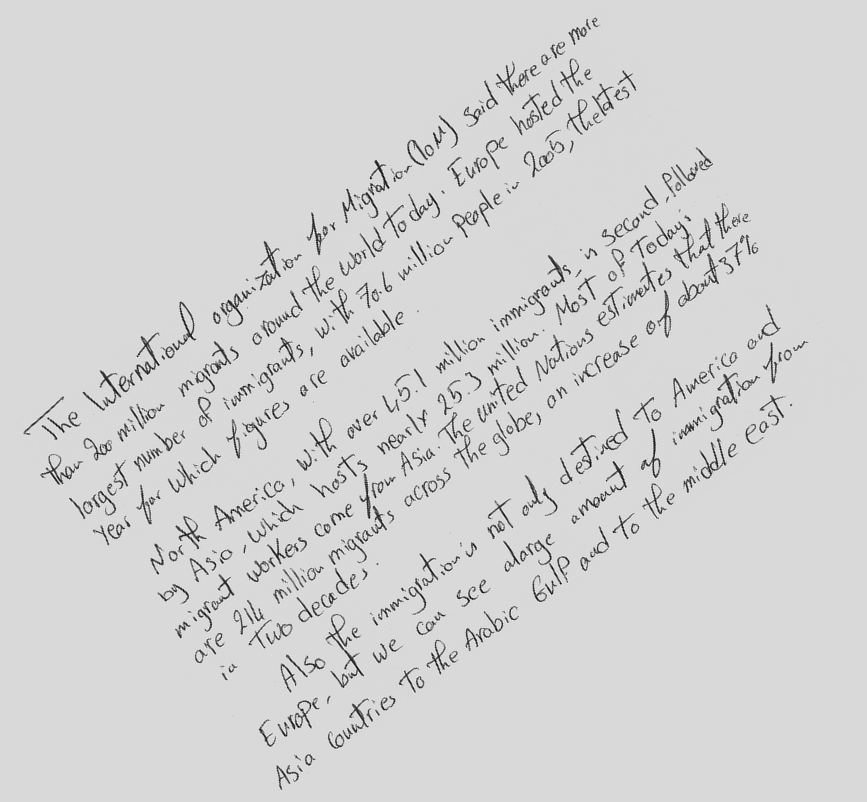 The International organization for Migration (IOM) said there are more
than 200 million migrants around the world today. Europe hosted the
largest number of immigrants, with 70.6 million people in 2005, the latest
year for which figures are available.
North America, with over 45.1 million immigrants, is second, followed
by Asia, which hosts nearly 25.3 million. Most of Today's
migrant workers come from Asia. The United Nations estimates that there
are 214 million migrants across the globe, an increase of about 37%
in Two decades.
Also the immigration is not only destined To America and
Europe, but we can see alarge amount of immigration from
Asia Countries to the Arabic Gulf and to the middle east.